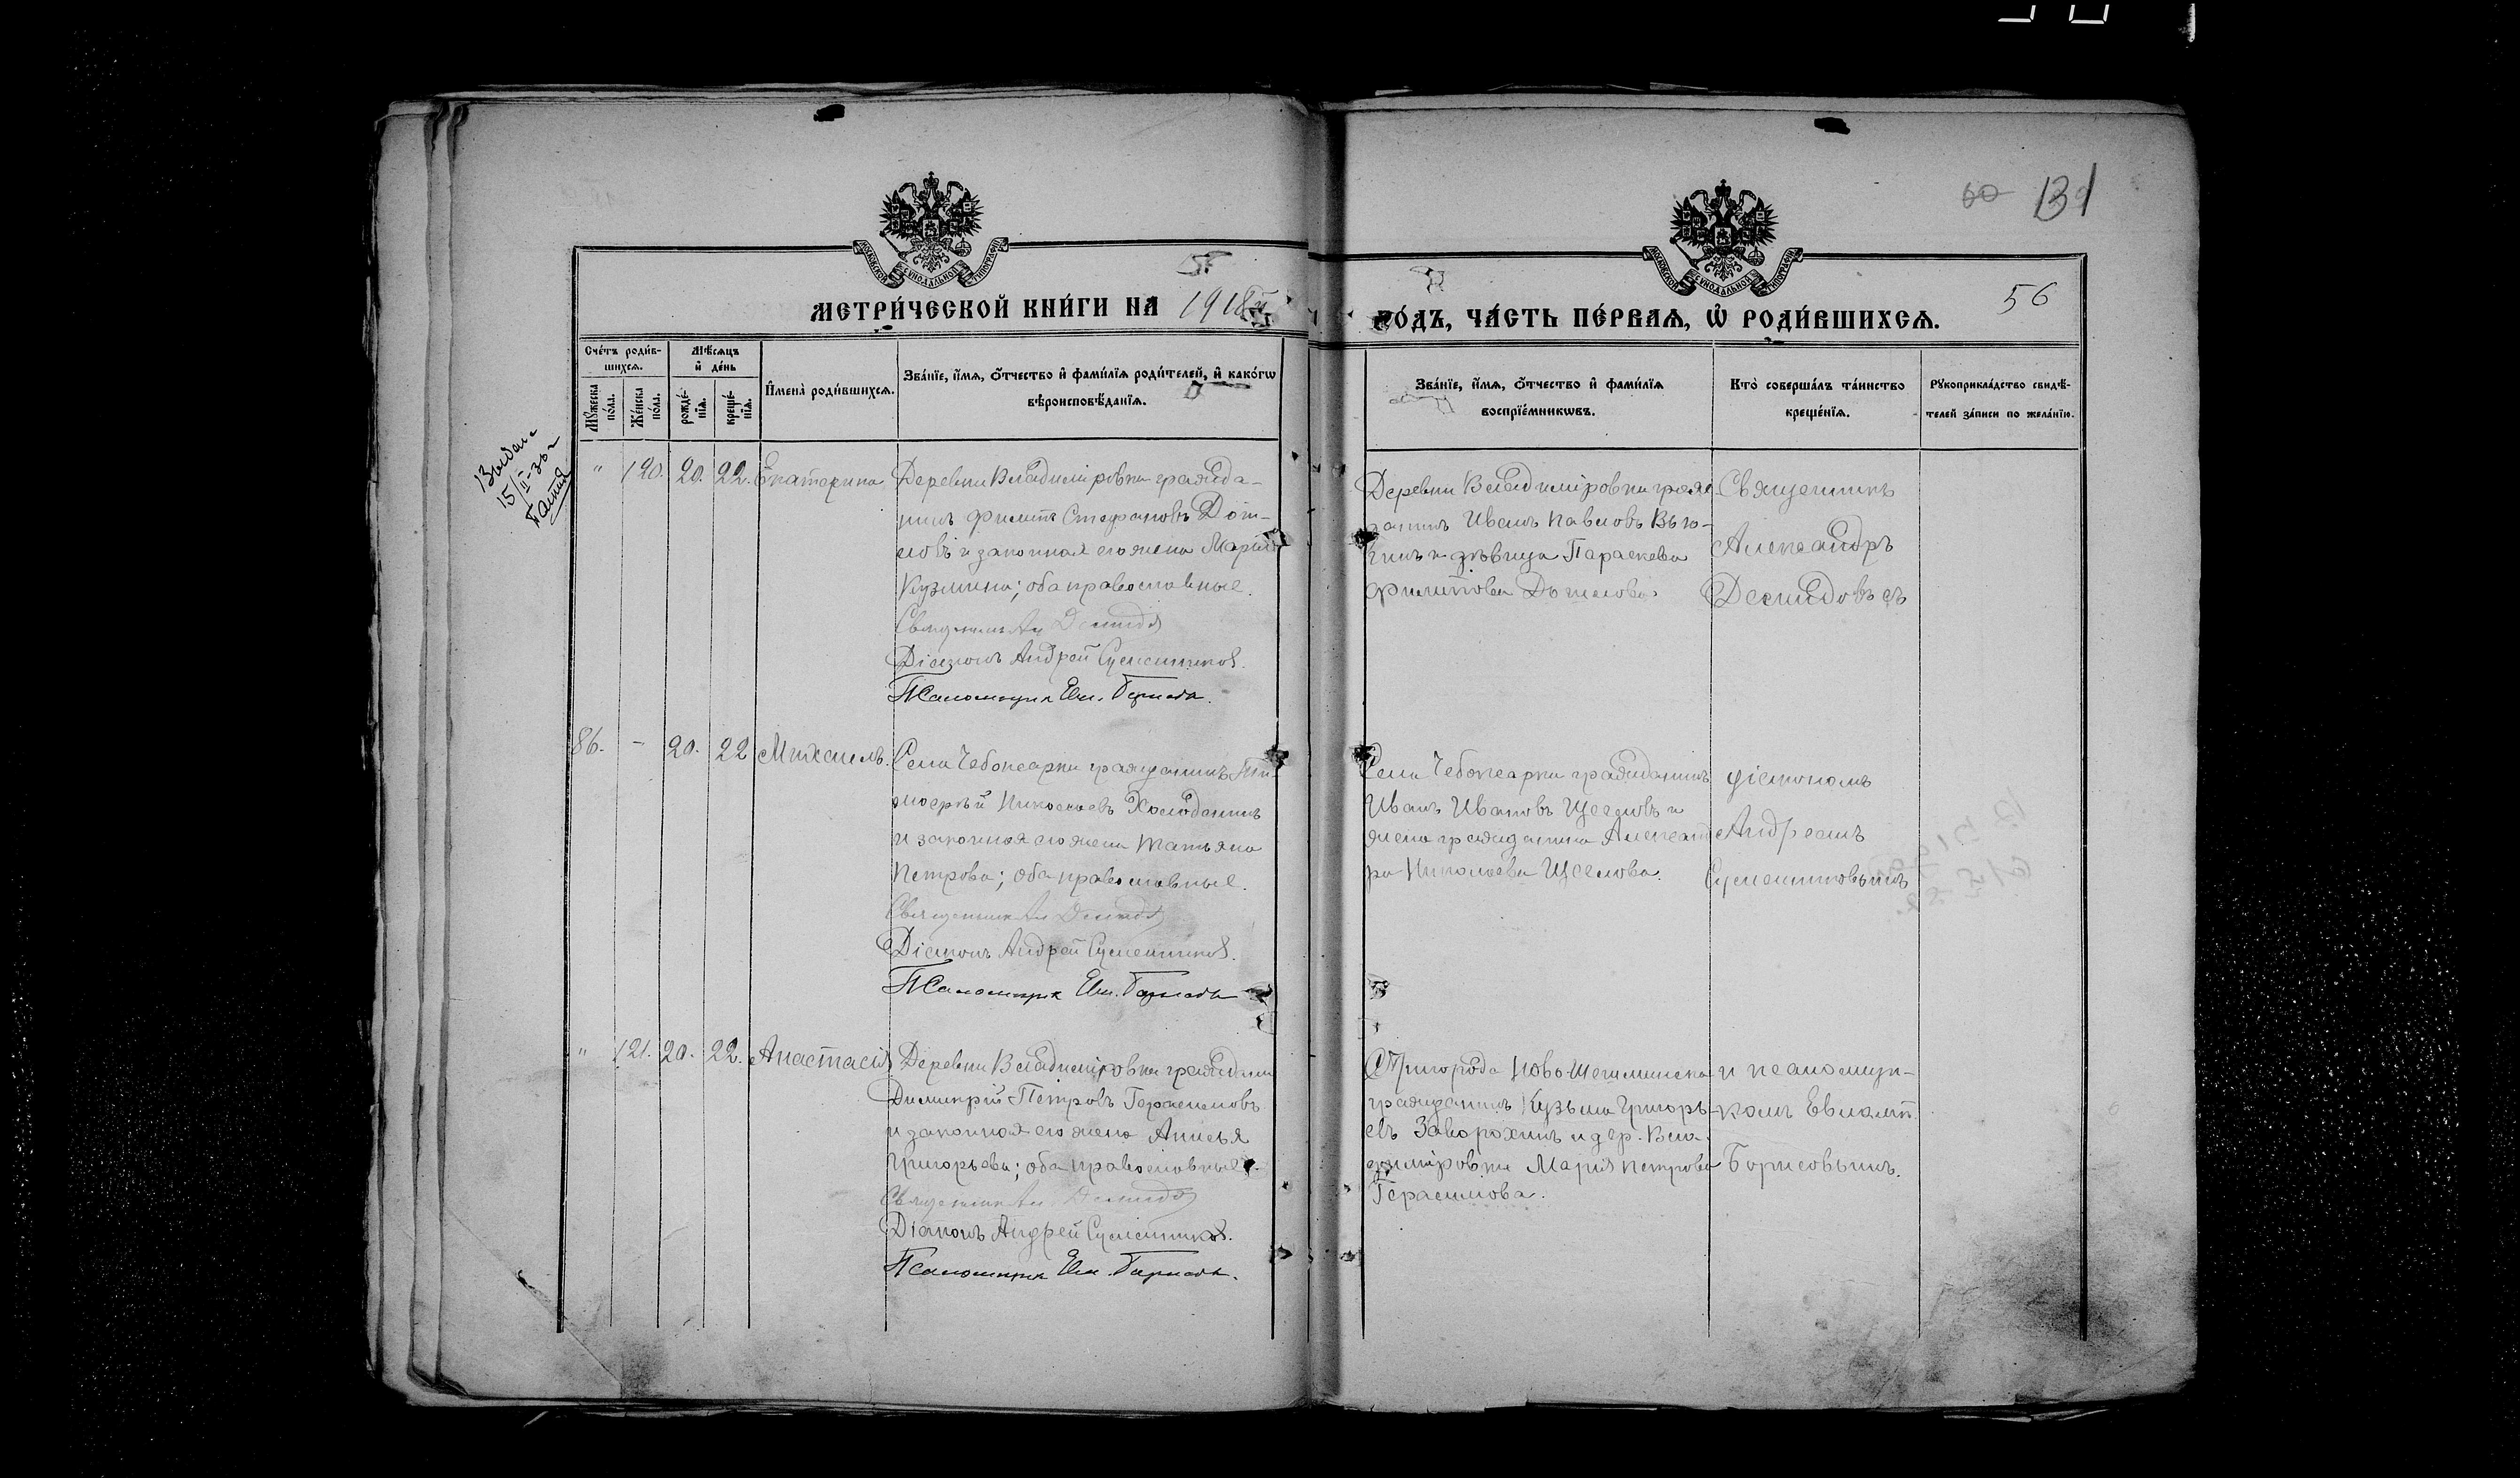 131
МЕТРИ́ЧЕСКОЙ КНИ́ГИ НА 1918й
ГО́ДЪ, ЧА́СТЬ ПЕ́РВАЯ, Ѡ РОДИ́ВШИХСЯ.
56
Сче́тъ роди́вшихся.
Мѣ́сяцъ и де́нь
Му́жеска по́ла.
Же́нска по́ла.
рожде́нїя.
креще́нїя.
Имена̀ роди́вшихся.
Зва́нїе, и́мя, о́тчество и фами́лїя роди́телей, и како́гѡ
вѣроисповѣ́данїя.
Зва́нїе, и́мя, о́тчество и фами́лїя
воспрїе́мникѡвъ.
Кто̀ соверша́лъ та́инство
креще́нїя.
Рꙋкоприкла́дство свидѣ́-
телей за́писи по жела́нїю.
15/II-
" 120. 20. 22. Екатерина
Деревни Владиміровки гражда-
нинъ Филиппъ Стефановъ
и законная его жена Марія
Кузмина; оба православные.
Священникъ Ал Демидов
Діаконъ Андрей
Псаломщик Евл. Борисов.
Деревни Владиміровки граж-
данинъ Иванъ Павловъ Вью-
гинъ и дѣвица Параскева
Филиппова
Священникъ
Александръ
Демидовъ съ
86. - 20. 22 Михаилъ.
Села Чебоксарки гражданинъ Ти-
моѳей Николаевъ Холоданинъ
и законная его жена Татьяна
Петрова; оба православные.
Священник Ал Демидов
Діаконъ Андрей
Псаломщик Евл. Борисов
Села Чебоксарки гражданинъ
Иванъ Ивановъ Щегловъ и
жена гражданина Александ
ра Николаева Щеглова.
діакономъ
Андреемъ
" 121. 20. 22. Анастасія
Деревни Владиміровки граждани
Димитрій Петровъ Герасимовъ
и законная его жена Анисья
Григорьева; оба православные.
Священник Ал Демидов
Діаконъ Андрей
Псаломщик Евл. Борисов.
Пригорода Ново-Шешминска
гражданинъ Кузьма Григорь-
евъ Заворохинъ и дер. Вла-
диміровки Марія Петрова
Герасимова.
и псаломщи-
комъ Евламп.
Борисовымъ.